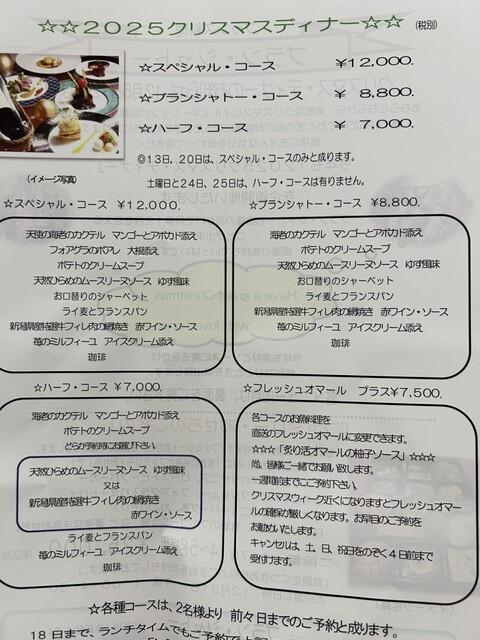 ☆☆2025クリスマスディナー☆☆ (税別)
☆スペシャル・コース ￥12,000.
☆ブランシャトー・コース ￥ 8,800.
☆ハーフ・コース ￥ 7,000.
◎13日、20日は、スペシャル・コースのみと成ります。
(イメージ写真)
土曜日と24日、25日は、ハーフ・コースは有りません。
☆スペシャル・コース ￥12,000.
天使の海老のカクテル マンゴーとアボカド添え
フォアグラのポアレ 大根添え
ポテトのクリームスープ
天然ひらめのムースリーヌソース ゆず風味
お口替りのシャーベット
ライ麦とフランスパン
新潟県産特選牛フィレ肉の網焼き 赤ワイン・ソース
苺のミルフィーユ アイスクリーム添え
珈琲
☆ブランシャトー・コース ￥8,800.
海老のカクテル マンゴーとアボカド添え
ポテトのクリームスープ
天然ひらめのムースリーヌソース ゆず風味
お口替りのシャーベット
ライ麦とフランスパン
新潟県産特選牛フィレ肉の網焼き 赤ワイン・ソース
苺のミルフィーユ アイスクリーム添え
珈琲
☆ハーフ・コース ￥7,000.
海老のカクテル マンゴーとアボカド添え
ポテトのクリームスープ
どちらか予約時にお選び下さい
天然ひらめのムースリーヌソース ゆず風味
又は
新潟県産特選牛フィレ肉の網焼き
赤ワイン・ソース
ライ麦とフランスパン
苺のミルフィーユ アイスクリーム添え
珈琲
☆フレッシュオマール プラス￥7,500.
各コースのお魚料理を
直送のフレッシュオマールに変更できます。
☆☆☆「炙り活オマールの柚子ソース」☆☆☆
尚、皆様ご一緒でお願い致します。
一週間前までにご予約下さい。
クリスマスウィーク近くになりますとフレッシュオマー
ルの確保が難しくなります。お早目のご予約を
お勧めいたします。
キャンセルは、土、日、祝日をのぞく4日前まで
受付ます。
☆各種コースは、2名様より 前々日までのご予約と成ります。
18日まで、ランチタイムでもご予約で